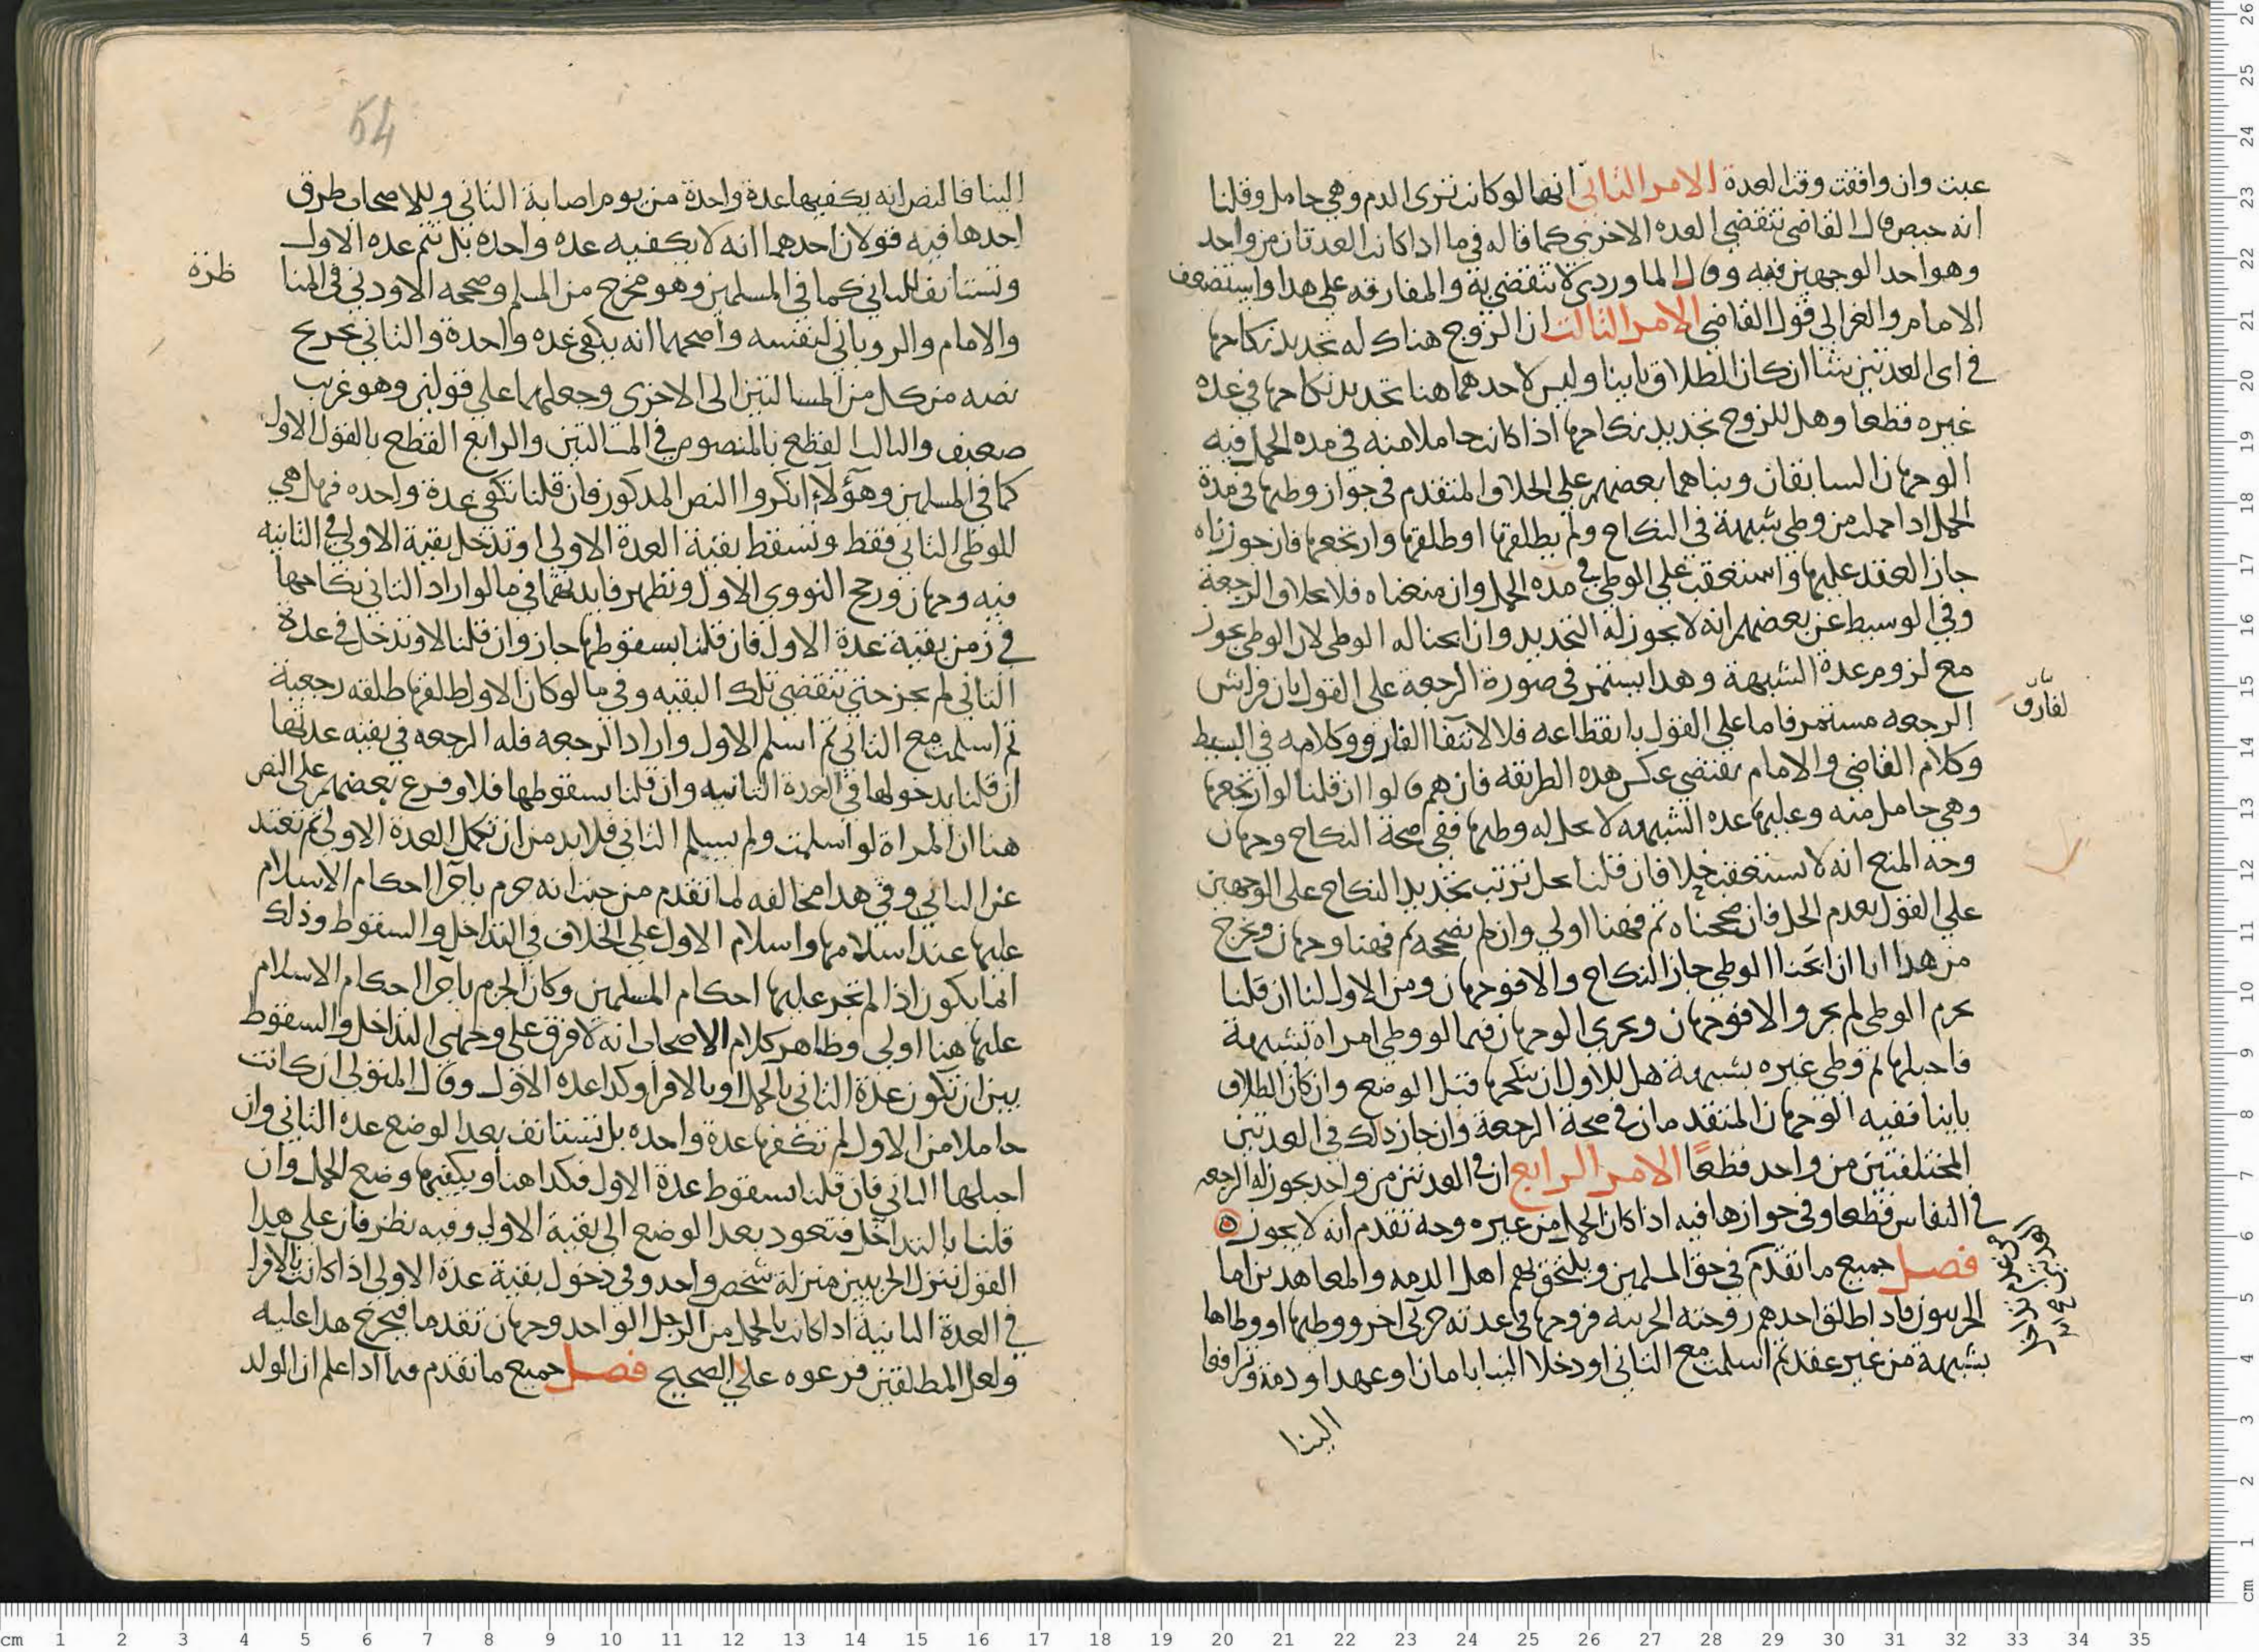 عيت وان وافقت وقت العدة الامر الثاني انها لو كانت ترى الدم وهي حامل وقلنا
انه حيض قال القاضي تنقضي العده الاخرى كما قاله في ما اذا كانت العدتان من واحد
وهو احد الوجهين فيه وقال الماوردي لا تنقضي به والمفارقه على هذا واستضعف
الامام والغزالي قول القاضي الامر الثالث ان الزوج هناك له تجديد نكاحها
في اى العدتين شا ان كان الطلاق باينا وليس لاحدهما هنا تجديد نكاحها في عده
غيره قطعا وهل للزوج تجديد نكاحها اذا كانت حاملا منه في مده الحمل فيه
الوجهان السابقان وبناهما بعضهم على الخلاف المتقدم في جواز وطيها في مدة
الحمل اذا حملت من وطي شبهة في النكاح ولم يطلقها او طلقها وارتجعها فان جوزناه
جاز العقد عليها واستعقب على الوطي في مده الحمل وان منعناه فلا بخلاف الرجعة
وفي الوسيط عن بعضهم انه لا يجوز له التجديد وان ابحنا له الوطي لان الوطي يجوز
مع لزوم عدة الشبهة وهذا يستمر في صورة الرجعه على القول بان فراش
الرجعه مستمر فاما على القول بانقطاعه فلا لانتفا الفارق وكلامه في البسيط
وكلام القاضي والامام يقتضي عكس هذه الطريقه فانهم قالوا ان قلنا لو ارتجعها
وهي حامل منه وعليها عده الشبهه لا يحل له وطيها ففي صحة النكاح وجهان
وجه المنع انه لا يستعقب حلا فان قلنا يحل ترتب تجديد النكاح على الوجهين
على القول بعدم الحل فان صححناه ثم فهنا اولي وان لم نصححه ثم فهنا وجهان ويخرج
من هذا انا ان ابحنا الوطي جاز النكاح والا فوجهان ومن الاول انا ان قلنا
يحرم الوطي لم يجز والا فوجهان ويجري الوجهان فيما لو وطي امراه بشبهة
فاحبلها ثم وطي غيره بشبهة هل للاول ان ينكحها قبل الوضع وان كان الطلاق
باينا ففيه الوجهان المتقدمان في صحة الرجعة وان جاز ذلك في العدتين
المختلفتين من واحد قطعا الامر الرابع ان في العدتين من واحد يجوز له الرجعه
في النفاس قطعا وفي جوازها فيه اذا كان الحمل من غيره وجه تقدم انه لا يجوز
فصل جميع ما تقدم في حق المسلمين ويلتحق بهم اهل الذمه والمعاهدين اما
الحربيون فاذا طلق احدهم زوجته الحربيه فزوجها في عدته حربي اخر ووطيها او وطاها
بشبهة من غير عقد ثم اسلمت مع الثاني او دخلا الينا بامان او عهد او ذمة وترافعا
الينا
لفارق
54
الينا فالنص انه يكفيها عدة واحدة من يوم اصابة الثاني وللاصحاب طرق
احدها فيه قولان احدهما انه لا يكفيه عده واحده بل تتم عده الاول
وتستانف للثاني كما في المسلمين وهو مخرج من المسلم وصححه الاودني في المنا
ظرة
والامام والروياني لنفسه واصحهما انه يكفي عده واحدة والثاني تخريج
نصه من كل من المسالتين الى الاخرى وجعلهما على قولين وهو غريب
ضعيف والثالث القطع بالمنصوص في المسالتين والرابع القطع بالقول الاول
كما في المسلمين وهؤلاء انكروا النص المذكور فان قلنا تكفي عدة واحده فهل هي
للوطي الثاني فقط وتسقط بقية العدة الاولى او تدخل بقية الاولى في الثانيه
فيه وجهان ورجح النووي الاول وتظهر فايدتهما في ما لو اراد الثاني نكاحها
في زمن بقية عدة الاول فان قلنا بسقوطها جاز وان قلنا لا وتدخل في عدة
الثاني لم يجز حتى تنقضي تلك البقيه وفي ما لو كان الاول طلقها طلقه رجعية
ثم اسلمت مع الثاني ثم اسلم الاول واراد الرجعه فله الرجعه في بقيه عدتها
ان قلنا بدخولها في العدة الثانيه وان قلنا بسقوطها فلا وفرع بعضهم على النص
هنا ان المراة لو اسلمت ولم يسلم الثاني فلا بد من ان تكمل العدة الاولى ثم تعتد
عن الثاني وفي هذا مخالفه لما تقدم من حيث انه جزم باجرا احكام الاسلام
عليها عند اسلامها واسلام الاول على الخلاف في التداخل والسقوط وذلك
انما يكون اذا لم تجر عليها احكام المسلمين وكان الجزم باجرا احكام الاسلام
عليها هنا اولي وظاهر كلام الاصحاب انه لا فرق على وجهي التداخل والسقوط
بين ان تكون عدة الثاني بالحمل او بالاقرا وكذا عده الاول وقال المتولي ان كانت
حاملا من الاول لم تكفها عدة واحده بل تستانف بعد الوضع عده الثاني وان
احبلها الثاني فان قلنا بسقوط عدة الاول فكذا هنا ويكفيها وضع الحمل وان
قلنا بالتداخل فتعود بعد الوضع الى بقية الاولى وفيه نظر فان على هذا
القول ننزل الحربيين منزلة شخص واحد وفي دخول بقية عدة الاولى اذا كانت بالاقرا
في العدة الثانية اذا كانت بالحمل من الرجل الواحد وجهان تقدما فيخرج هذا عليه
ولعل المطلقين فرعوه على الصحيح فصل جميع ما تقدم فيما اذا علم ان الولد